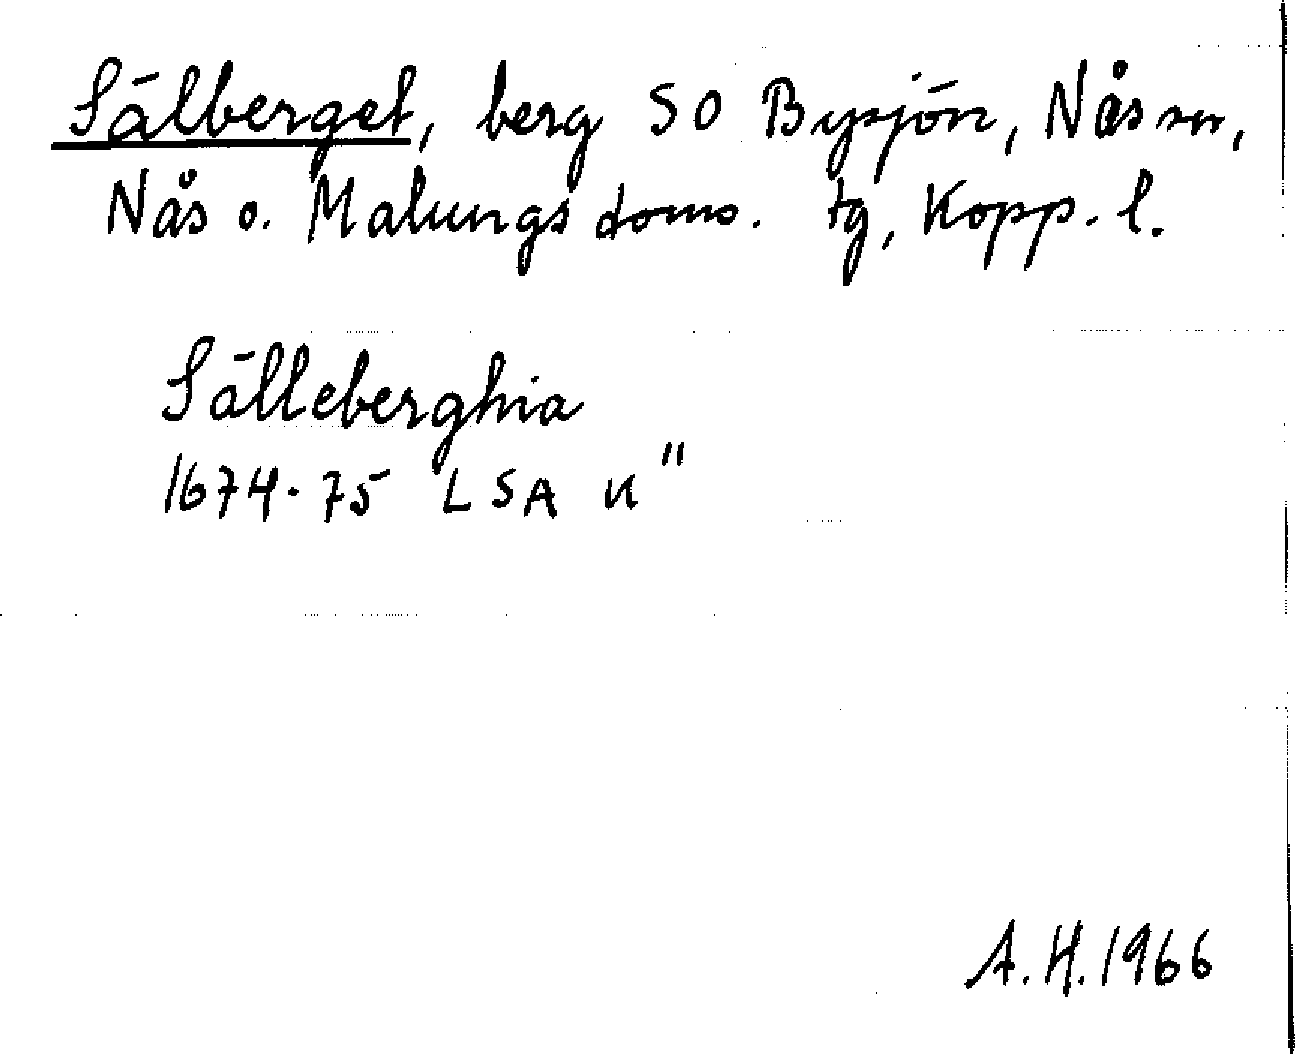 Sälberget, berg SO Bysjön, Nås sn,
Nås o. Malungs doms. tg, Kopp. l.
Sälleberghia
1674-75 LSA U"
A.H. 1966